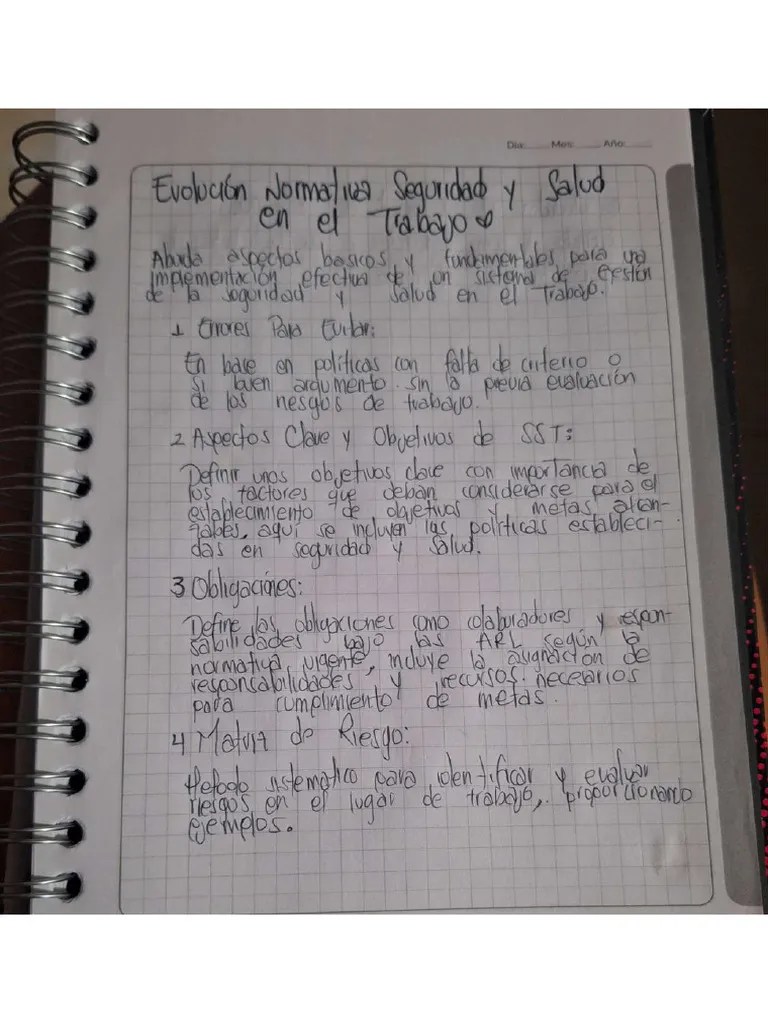 Dia: Mes: Año:
Evolución Normativa Seguridad y Salud
en el Trabajo
Abuda aspectos basicos y fundamentales para una
implementación efectiva de un sistema de Gestión
de la seguridad y salud en el Trabajo.
1 Errores Para Evitar:
En base en políticas con falta de criterio o
si buen argumento sin la previa evaluación
de los riesgos de trabajo.
2 Aspectos Clave y Objetivos de SST:
Definir unos objetivos clave con importancia de
los factores que deban considerarse para el
establecimiento de objetivos y metas alcan-
zables, aquí se incluyen las políticas estableci-
das en seguridad y salud.
3 Obligaciónes:
Define las obligaciones como colaboradores y respon-
sabilidades bajo las ARL según la
normativa vigente, incluye la asignación de
responsabilidades y recursos necesarios
para cumplimiento de metas.
4 Matriz de Riesgo:
Metodo sistematico para identificar y evaluar
riesgos en el lugar de trabajo, proporcionando
ejemplos.